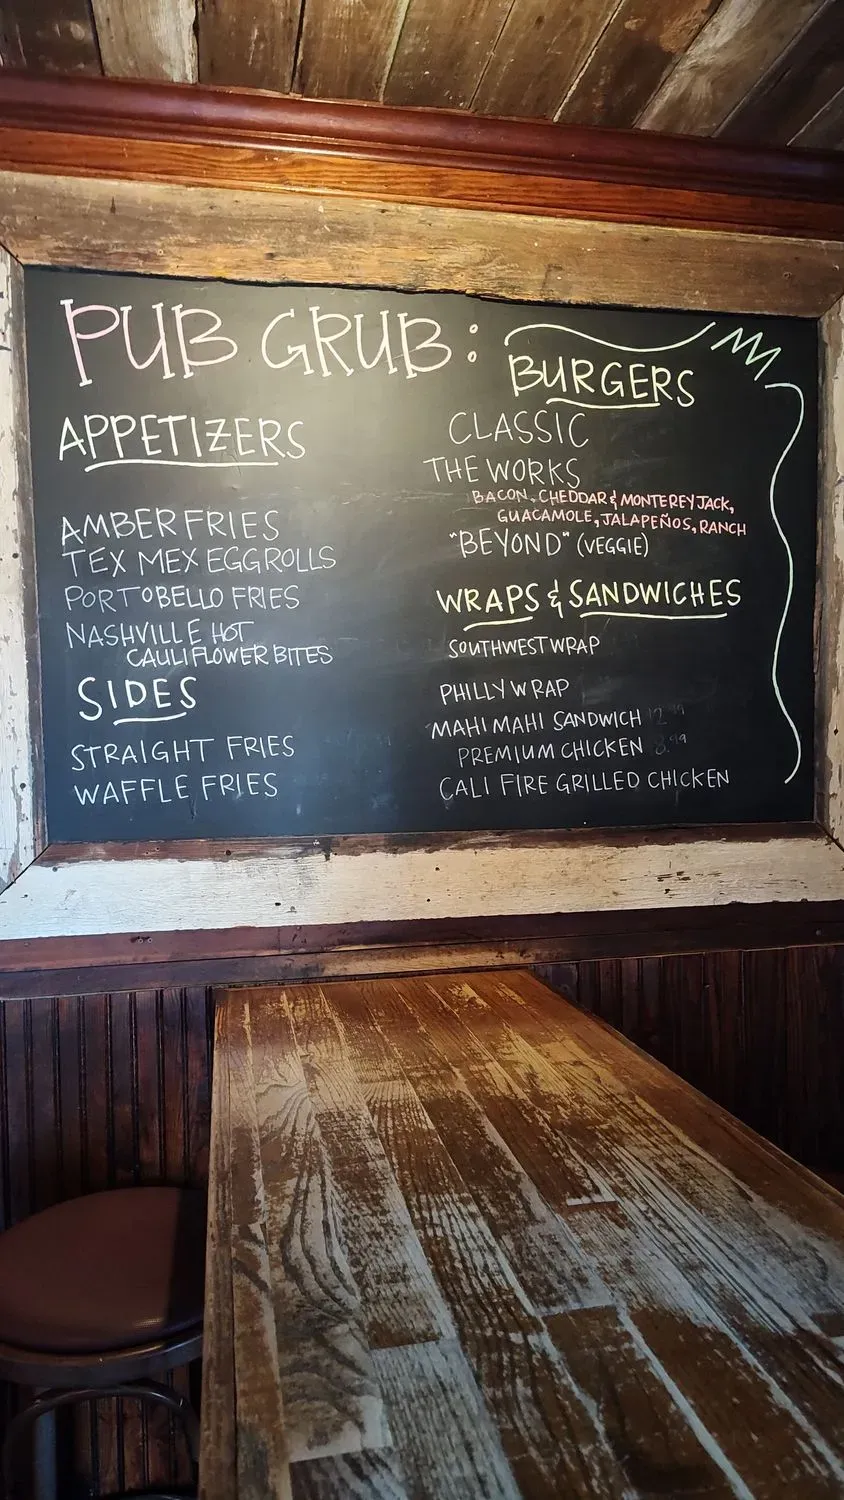 PUB GRUB:
APPETIZERS
AMBER FRIES
TEX MEX EGGROLLS
PORTOBELLO FRIES
NASHVILLE HOT
CAULIFLOWER BITES
SIDES
STRAIGHT FRIES
WAFFLE FRIES
BURGERS
CLASSIC
THE WORKS
BACON, CHEDDAR & MONTEREY JACK,
GUACAMOLE, JALAPEÑOS, RANCH
"BEYOND" (VEGGIE)
WRAPS & SANDWICHES
SOUTHWEST WRAP
PHILLY WRAP
MAHI MAHI SANDWICH 12.99
PREMIUM CHICKEN 8.99
CALI FIRE GRILLED CHICKEN